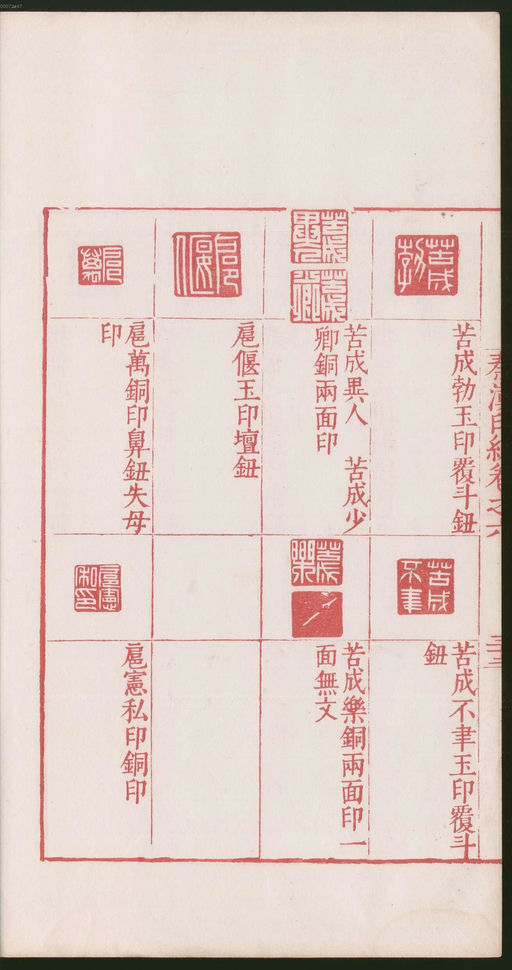 秦漢印統卷之六
三十三
苦成勃玉印覆斗鈕
苦成不聿玉印覆斗
鈕
苦成異人　苦成少
卿銅兩面印
苦成樂銅兩面印一
面無文
扈偃玉印壇鈕
扈萬銅印鼻鈕失母
印
扈憲私印銅印